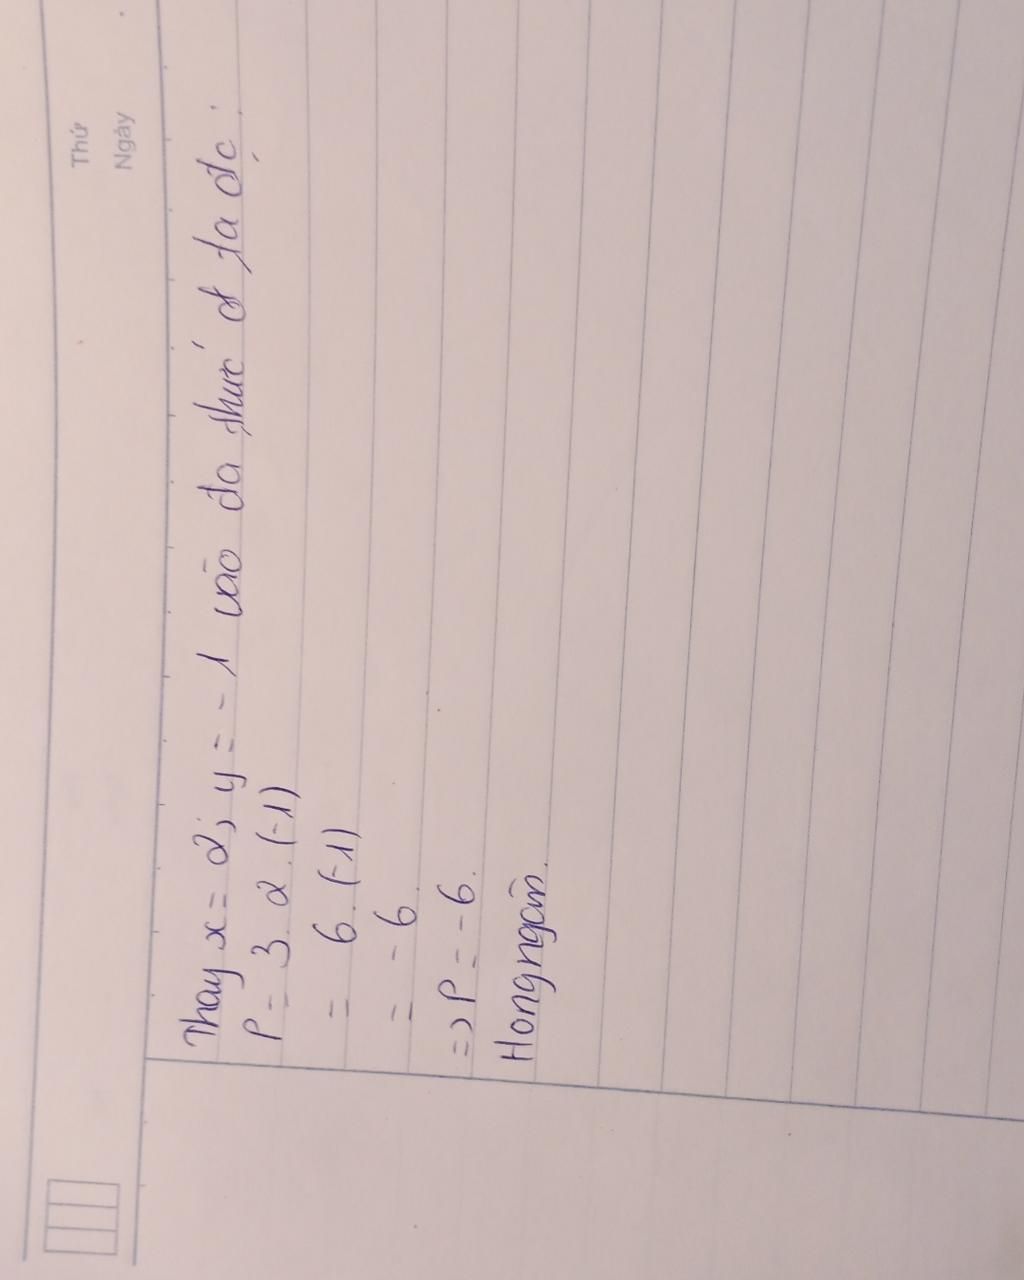 Thứ
Ngày
Thay x = 2; y = -1 vào đa thức ta đc:
P = 3. 2. (-1)
= 6. (-1)
= -6.
=> P = -6.